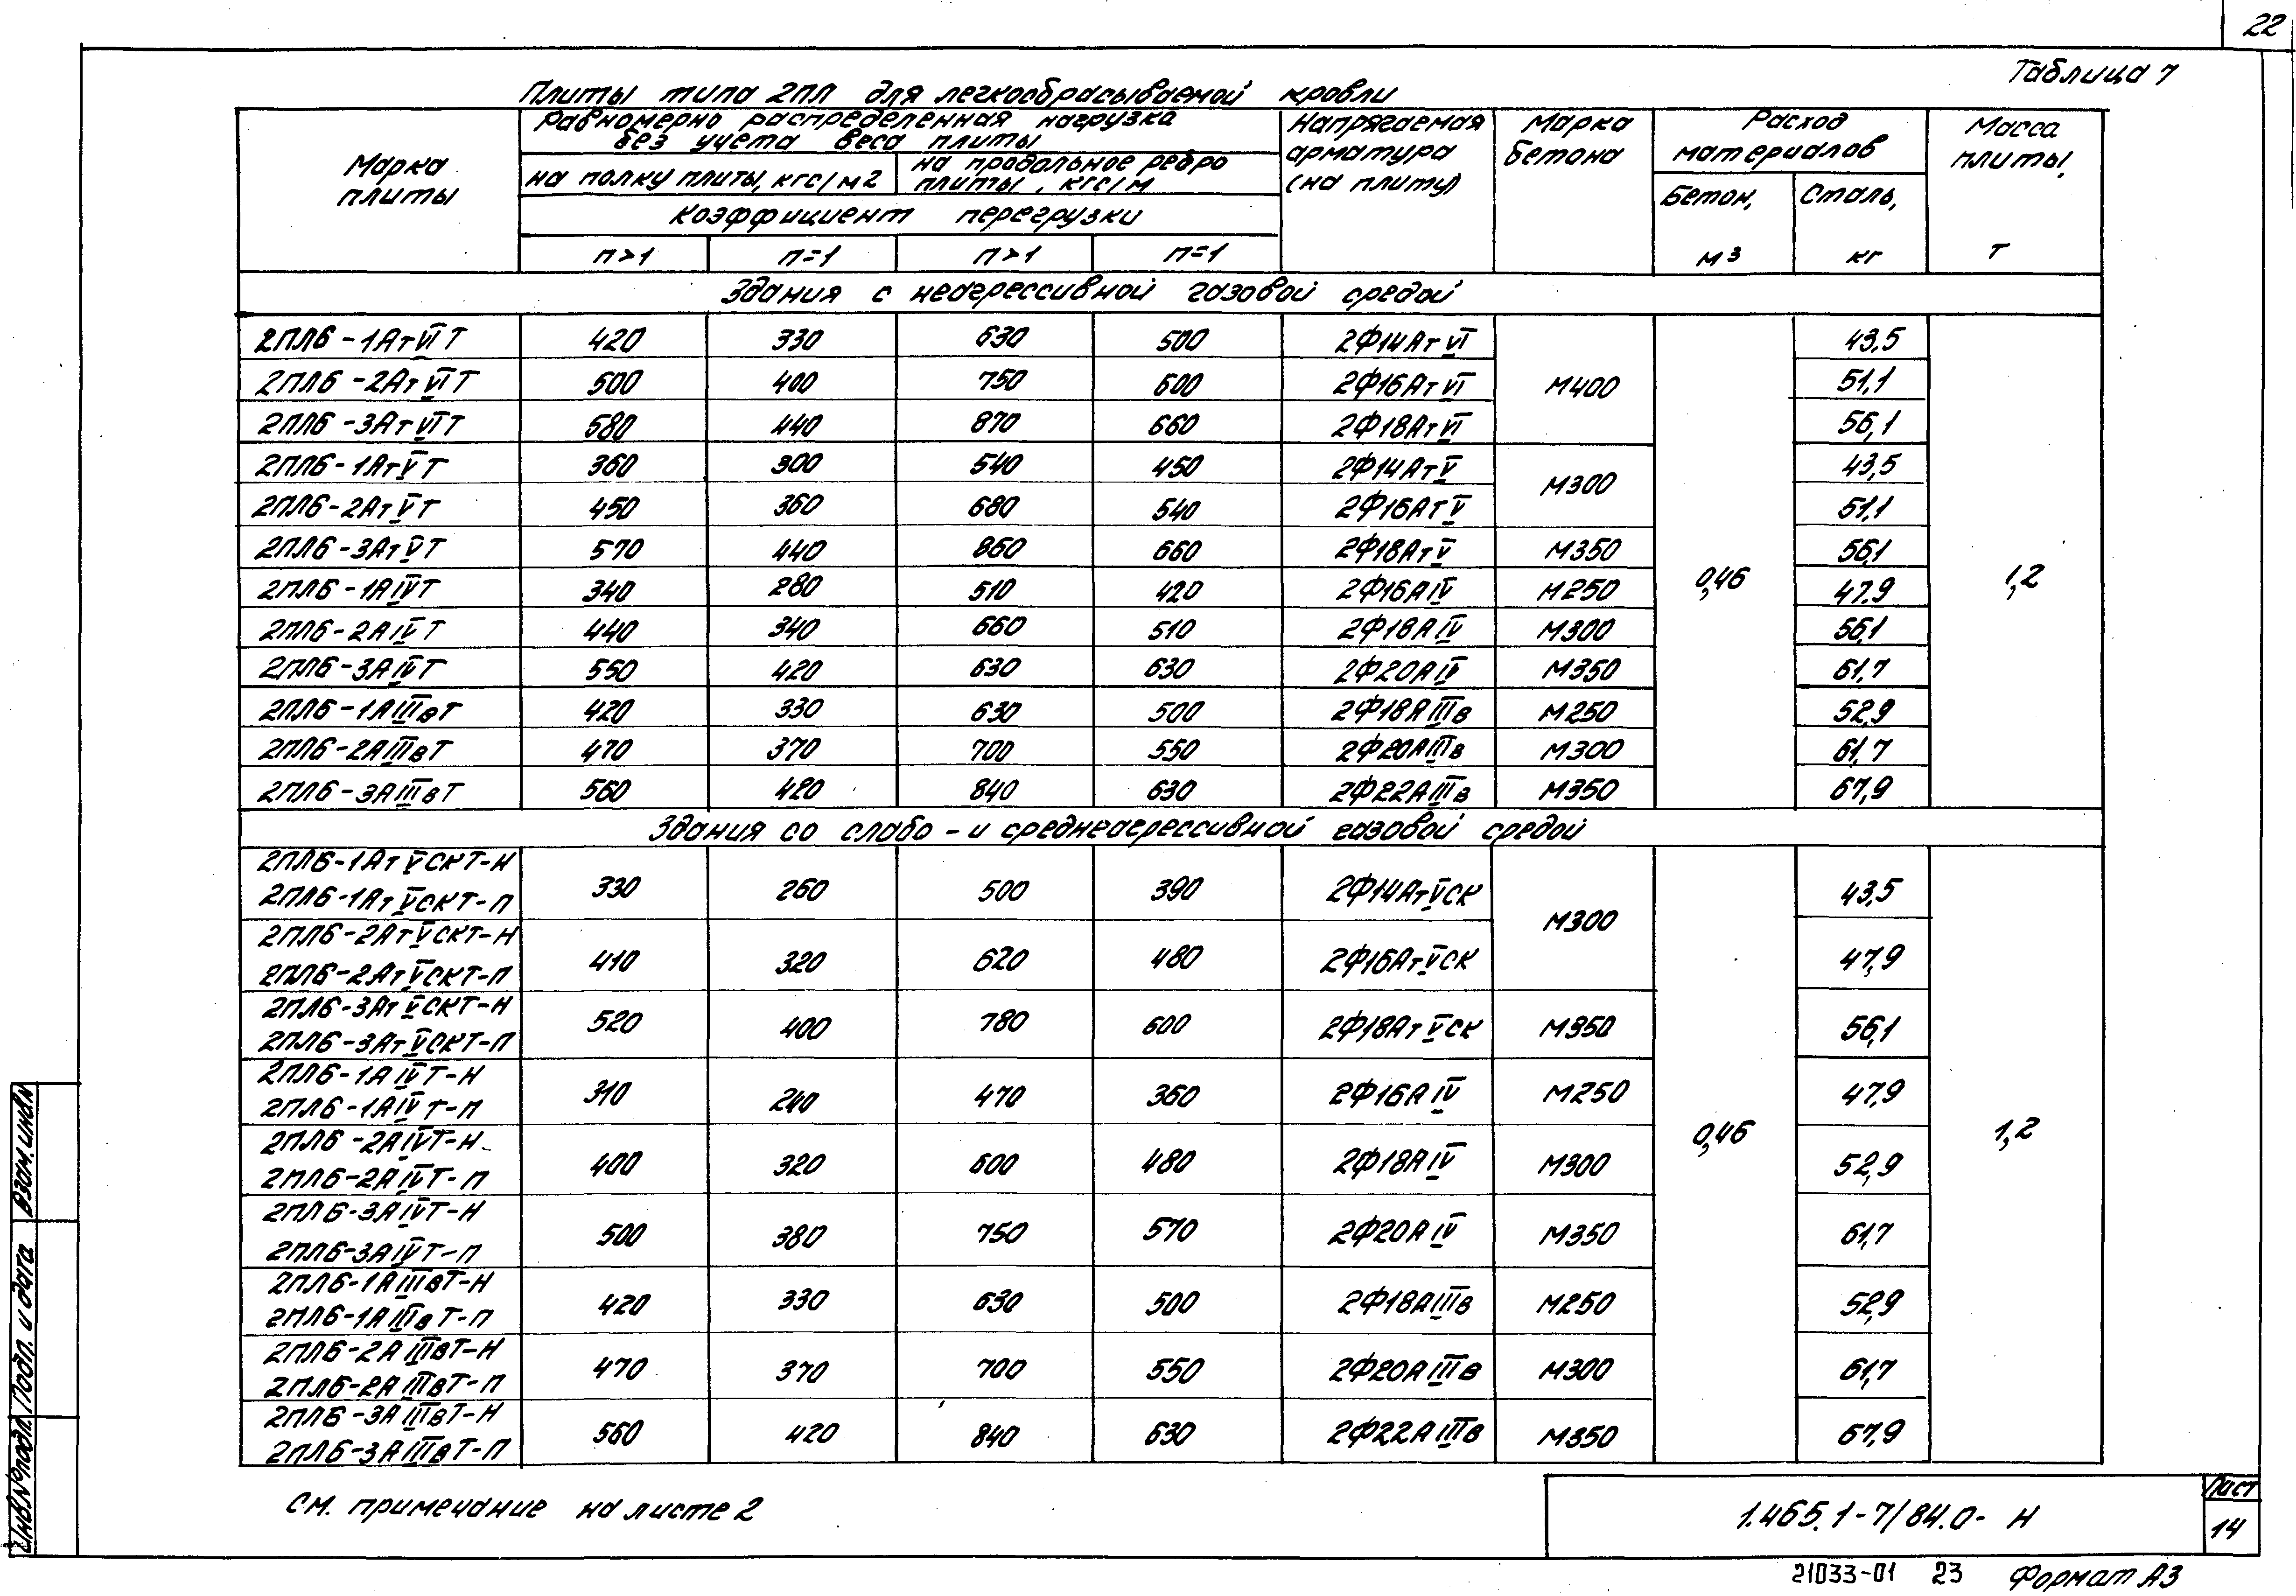 22
Таблица 7
Плиты типа 2ПЛ для легкосбрасываемой кровли
Марка плиты
Равномерно распределенная нагрузка без учета веса плиты
на полку плиты, кгс/м2
на продольное ребро плиты, кгс/м
Коэффициент перегрузки
п>1 п=1 п>1 п=1
Напрягаемая арматура (на плиту)
Марка бетона
Расход материалов
Бетон, м3
Сталь, кг
Масса плиты, т
Здания с неагрессивной газовой средой
2ПЛ6-1АтVIТ 420 330 630 500 2Ф14АтVI М400 0,46 43,5 1,2
2ПЛ6-2АтVIТ 500 400 750 600 2Ф16АтVI 51,1
2ПЛ6-3АтVIТ 580 440 870 660 2Ф18АтVI 56,1
2ПЛ6-1АтVТ 360 300 540 450 2Ф14АтV М300 43,5
2ПЛ6-2АтVТ 450 360 680 540 2Ф16АтV 51,1
2ПЛ6-3АтVТ 570 440 860 660 2Ф18АтV М350 56,1
2ПЛ6-1АIVТ 340 280 510 420 2Ф16АIV М250 47,9
2ПЛ6-2АIVТ 440 340 660 510 2Ф18АIV М300 56,1
2ПЛ6-3АIVТ 550 420 630 630 2Ф20АIV М350 61,7
2ПЛ6-1АIIIвТ 420 330 630 500 2Ф18АIIIв М250 52,9
2ПЛ6-2АIIIвТ 470 370 700 550 2Ф20АIIIв М300 61,7
2ПЛ6-3АIIIвТ 560 420 840 630 2Ф22АIIIв М350 67,9
Здания со слабо-и среднеагрессивной газовой средой
2ПЛ6-1АтVСКТ-Н
2ПЛ6-1АтVСКТ-П 330 260 500 390 2Ф14АтVСК М300 0,46 43,5 1,2
2ПЛ6-2АтVСКТ-Н
2ПЛ6-2АтVСКТ-П 410 320 620 480 2Ф16АтVСК 47,9
2ПЛ6-3АтVСКТ-Н
2ПЛ6-3АтVСКТ-П 520 400 780 600 2Ф18АтVСК М350 56,1
2ПЛ6-1АIVТ-Н
2ПЛ6-1АIVТ-П 310 240 470 360 2Ф16АIV М250 47,9
2ПЛ6-2АIVТ-Н
2ПЛ6-2АIVТ-П 400 320 600 480 2Ф18АIV М300 52,9
2ПЛ6-3АIVТ-Н
2ПЛ6-3АIVТ-П 500 380 750 570 2Ф20АIV М350 61,7
2ПЛ6-1АIIIвТ-Н
2ПЛ6-1АIIIвТ-П 420 330 630 500 2Ф18АIIIв М250 52,9
2ПЛ6-2АIIIвТ-Н
2ПЛ6-2АIIIвТ-П 470 370 700 550 2Ф20АIIIв М300 61,7
2ПЛ6-3АIIIвТ-Н
2ПЛ6-3АIIIвТ-П 560 420 840 630 2Ф22АIIIв М350 67,9
См. примечание на листе 2
1.465.1-7/84.0- Н
Лист
14
21033-01 23 Формат А3
Инв.№подл. Подп. и дата Взам.инв.№